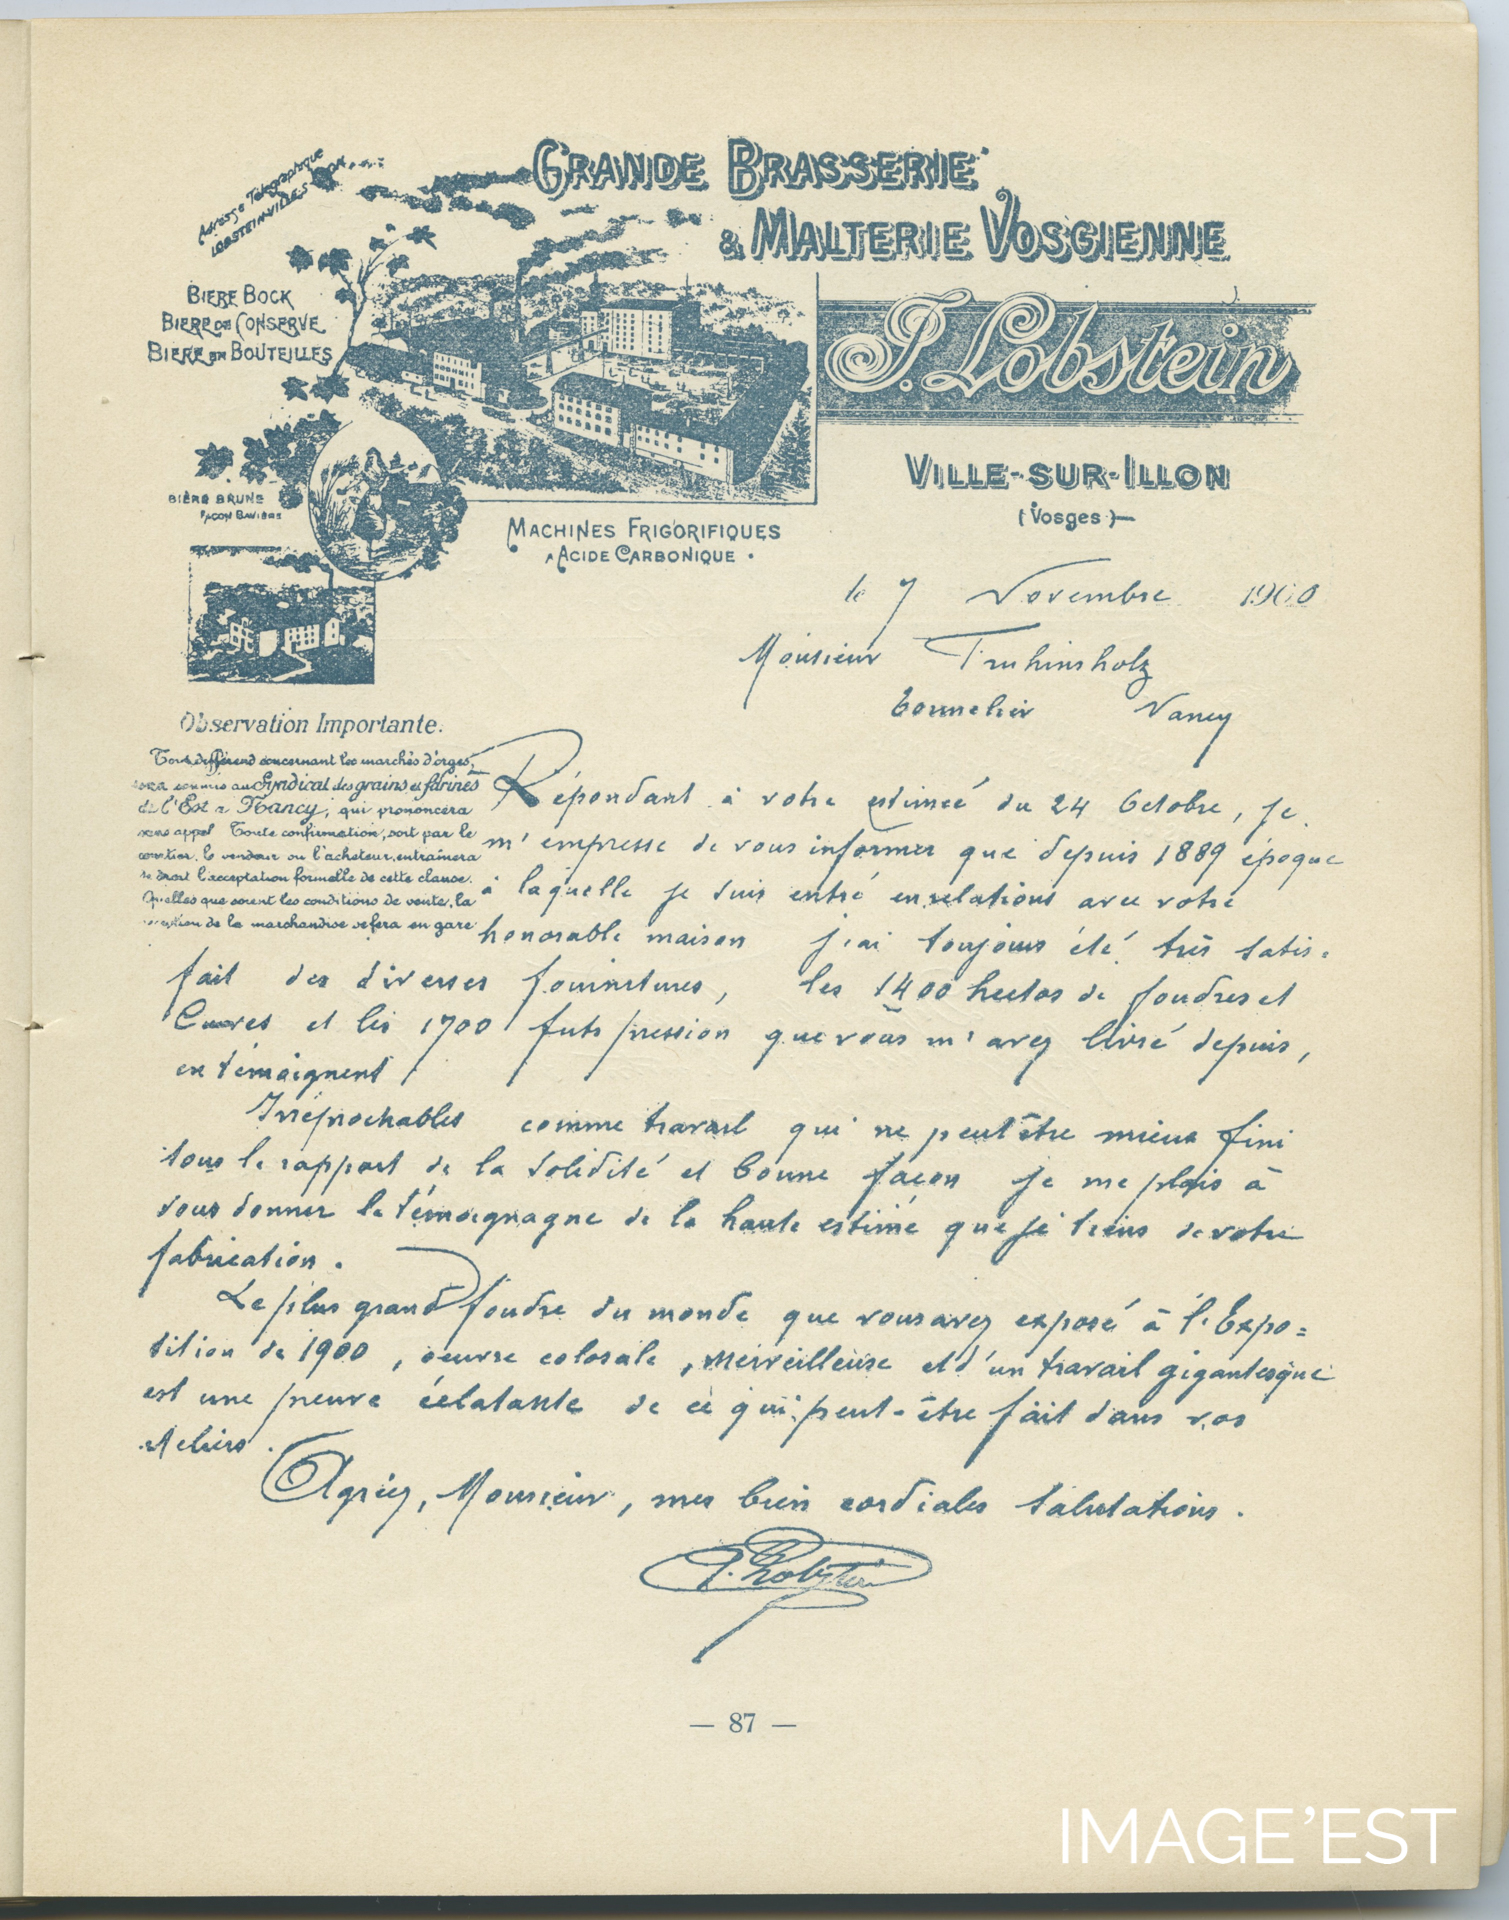 Adresse Télégraphique
LOBSTEIN-VILLE-S
GRANDE BRASSERIE
& MALTERIE VOSGIENNE
BIERE BOCK
BIERE DE CONSERVE
BIERE EN BOUTEILLES
J. Lobstein
VILLE-SUR-ILLON
(Vosges)
BIÈRE BRUNE
FAÇON BAVIÈRE
MACHINES FRIGORIFIQUES
ACIDE CARBONIQUE
le 7 Novembre 1900
Monsieur Fruhinsholz
Tonnelier Nancy
Observation Importante.
Tout différend concernant les marchés d'orges,
sera soumis au Syndicat des grains et farines
de l'Est à Nancy, qui prononcera
sans appel Toute confirmation, soit par le
courtier, le vendeur ou l'acheteur, entraînera
de droit l'acceptation formelle de cette clause.
Quelles que soient les conditions de vente, la
réception de la marchandise se fera en gare
Répondant à votre estimée du 24 Octobre, je
m'empresse de vous informer que depuis 1889 époque
à laquelle je suis entré en relations avec votre
honorable maison j'ai toujours été très satis=
fait des diverses fournitures, les 1400 hectos de foudres et
Cuves et les 1700 futs pression que vous m'avez livré depuis,
en témoignent
Irréprochables comme travail qui ne peut être mieux fini
sous le rapport de la solidité et bonne façon je me plais à
vous donner le témoignagne de la haute estime que je tiens de votre
fabrication.
Le plus grand foudre du monde que vous avez exposé à l'Expo=
sition de 1900, oeuvre colosale, merveilleuse et d'un travail gigantesque
est une preuve éclatante de ce qui peut-être fait dans vos
Ateliers.
Agréez, Monsieur, mes bien cordiales salutations.
J. Lobstein
— 87 —
IMAGE'EST